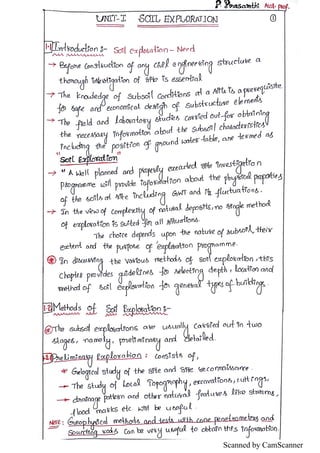 P. Prasanthi Asst. prof.
UNIT-I SOIL EXPLORATION ①
1.1 Introduction :- Soil exploration - Need
→ Before Construction of any civil engineering structure a
thorough investigation of site is essential
→ The knowledge of subsoil conditions at a site is a prerequisite
for safe and economical design of substructure elements
→ The field and laboratory studies carried out for obtaining
the necessary information about the subsoil characteristics
including the position of ground water table, are termed as
"Soil Exploration"
→ " A well planned and properly executed site investigation
programme will provide information about the physical properties
of the soils at site including GWT and its fluctuations.
→ In the view of complexity of natural deposits, no single method
of exploration is suited for all situations.
The choice depends upon the nature of subsoil, their
extent and the purpose of exploration programme.
In discussing the various methods of soil exploration, this
chapter provides guidelines for selecting depth, location and
method of soil exploration for general types of buildings.
Methods of Soil Exploration :-
The subsoil explorations are usually carried out in two
stages, namely, preliminary and detailed.
Preliminary Exploration : consists of,
* Geological study of the site and site reconnaissance.
→ The study of local Topography, excavations, cuttings,
→ drainage pattern and other natural features like streams,
flood marks etc will be useful.
NOTE: Geophysical methods and tests with cone penetrometers and
Sounding rods can be very useful to obtain this information
Scanned by CamScanner